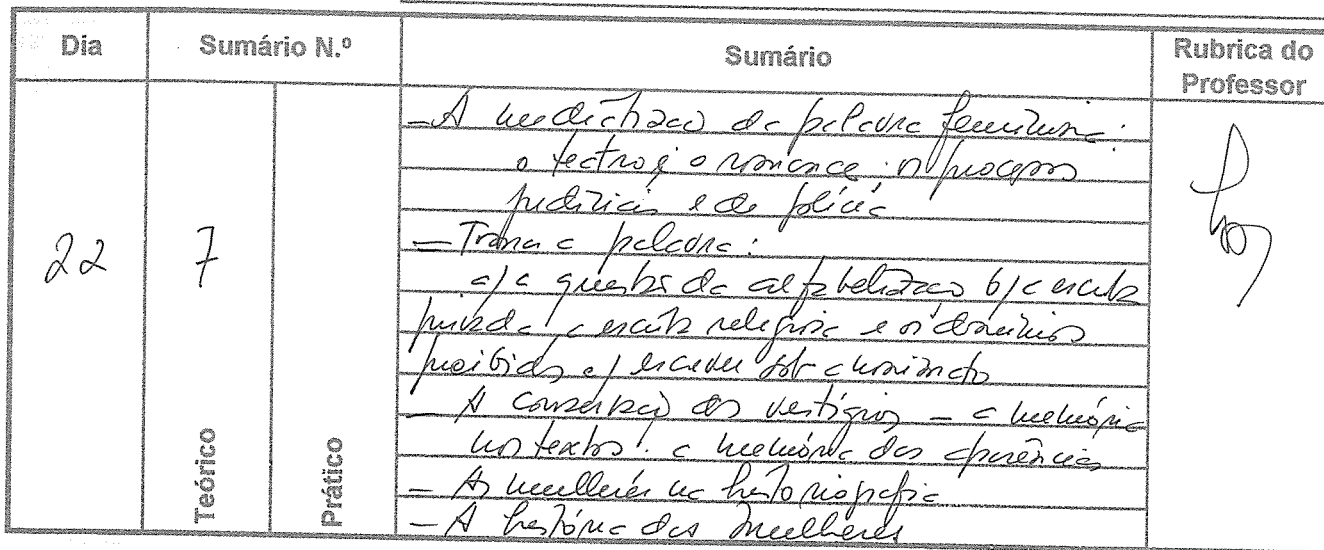 Dia
Sumário N.º
Sumário
Rubrica do
Professor
- A mediatização da palavra feminina:
o teatro e o romance; os processos
judiciais e de polícia
22
7
- Tomar a palavra:
a/ a questão da alfabetização b/ a escrita
privada, a escrita religiosa e os domínios
proibidos c/ escrever sob anonimato
- A conservação dos vestígios - a memória
nos textos: a memória das aparências
- As mulheres na historiografia
- A história das mulheres
Teórico
Prático